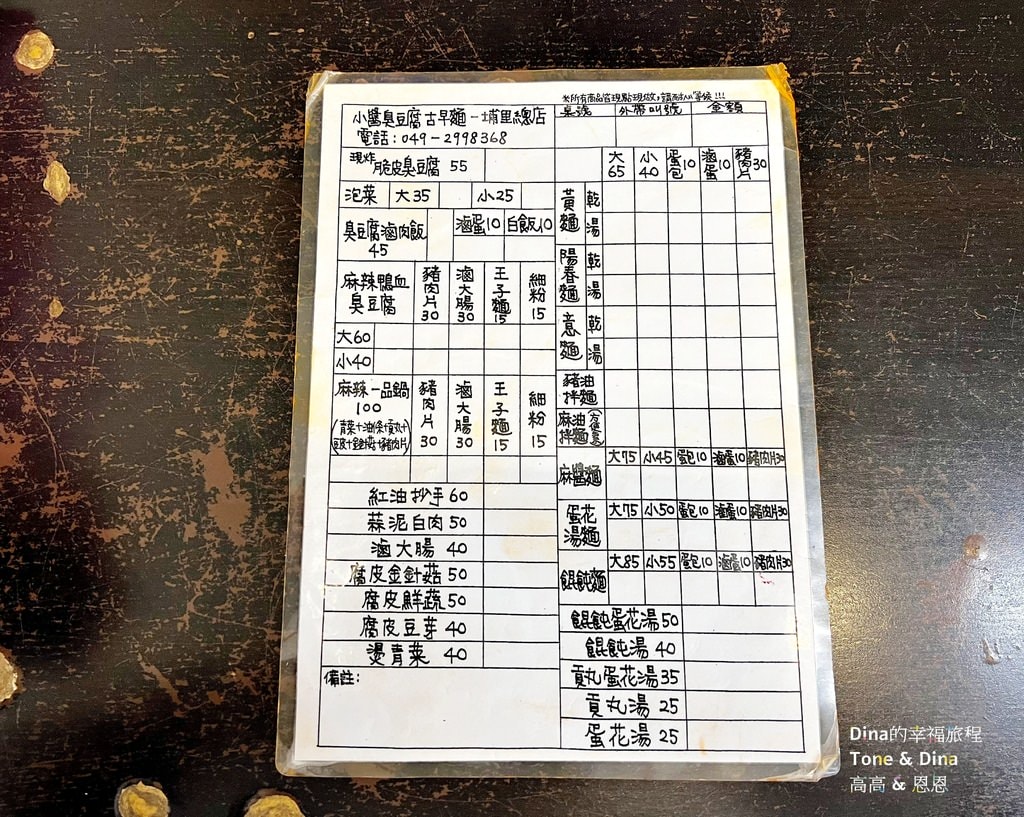 ※所有商品皆現點現做，請耐心等候!!!
小醬臭豆腐古早麵－埔里總店
電話：049－2998368
現炸 脆皮臭豆腐 55
泡菜 大35 小25
臭豆腐滷肉飯 45 滷蛋10 白飯10
麻辣鴨血臭豆腐 豬肉片30 滷大腸30 王子麵15 細粉15
大60
小40
麻辣一品鍋 100 豬肉片30 滷大腸30 王子麵15 細粉15
紅油抄手 60
蒜泥白肉 50
滷大腸 40
腐皮金針菇 50
腐皮鮮蔬 50
腐皮豆芽 40
燙青菜 40
備註：
桌號 外帶叫號 金額
大65 小40 蛋包10 滷蛋10 豬肉片30
黃麵 乾 湯
陽春麵 乾 湯
意麵 乾 湯
豬油拌麵
麻油拌麵
麻醬麵 大75 小45 蛋包10 滷蛋10 豬肉片30
蛋花湯麵 大75 小50 蛋包10 滷蛋10 豬肉片30
餛飩麵 大85 小55 蛋包10 滷蛋10 豬肉片30
餛飩蛋花湯 50
餛飩湯 40
貢丸蛋花湯 35
貢丸湯 25
蛋花湯 25
Dina的幸福旅程
Tone & Dina
高高 & 恩恩